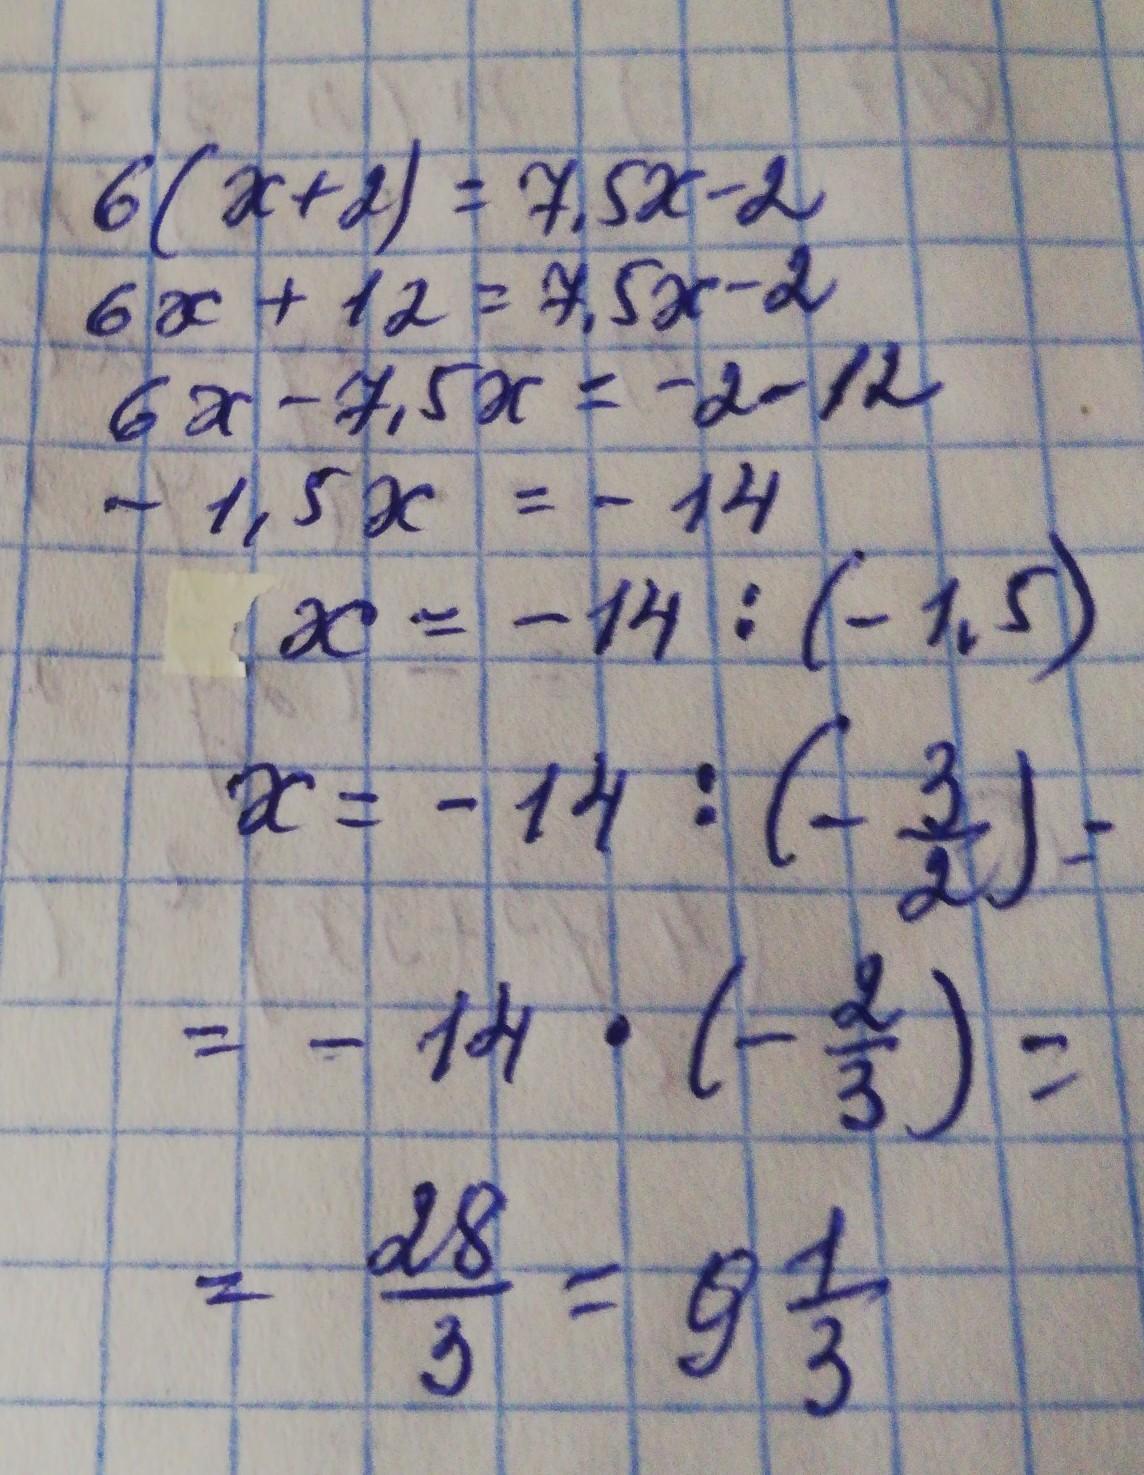 6(x+2) = 7,5x-2
6x + 12 = 7,5x-2
6x - 7,5x = -2-12
- 1,5x = - 14
x = - 14 : (- 1,5)
x = - 14 : (- 3/2) =
= - 14 · (- 2/3) =
= 28/3 = 9 1/3